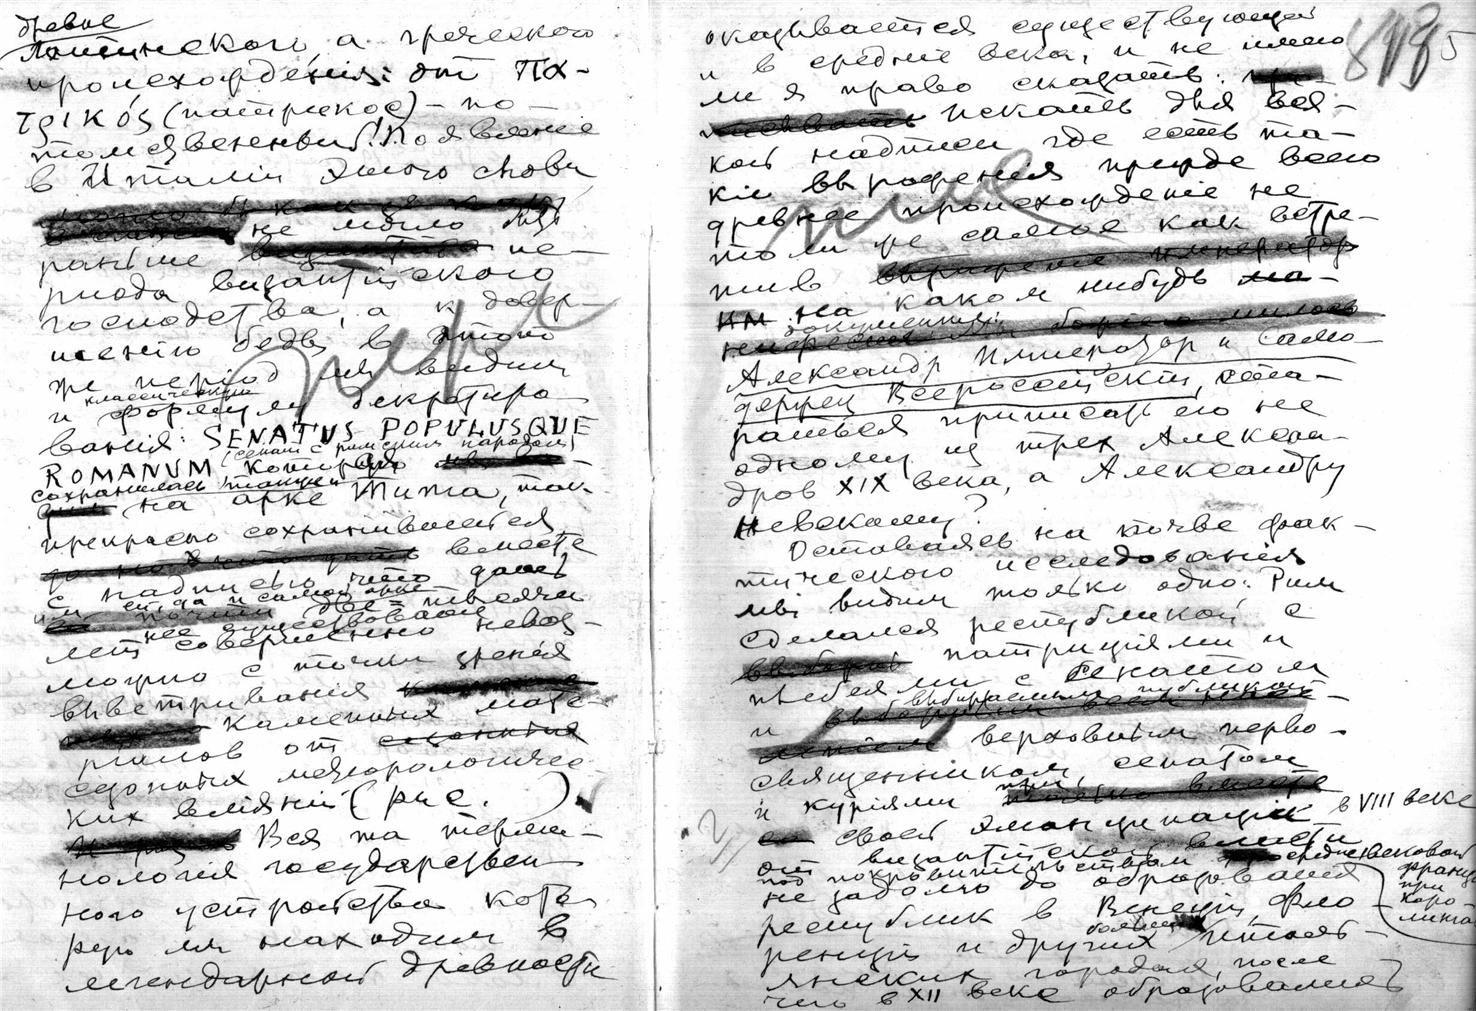 древне
Латинского, а греческого
происхожденія: от πα-
τρικός (патрикос) – по-
томственный! Появленіе
в Италіи этого слова
не могло быть
раньше пе-
риода византійского
господства, а к довер-
шенію беды в этот
же період мы видим
классический
и формулу декретиро-
ванія: SENATUS POPULUSQUE
(сенат с римским народом)
ROMANUM которая
сохранилась
на арке Тита, так
прекрасно сохранившейся
вместе
с надписью, что даже
две тысячи
нее существованіе
лет совершенно невоз-
можно с точки зренія
выветриванія
каменных мате-
риалов от
сезонных метеорологичес-
ких вліяній (рис. )
Вся та терми-
нологія государствен
ного устройства кото
рую мы находим в
легендарной древности
оказывается существующей
и в средніе века, и не имею
ли я право сказать:
искать для вся-
кой надписи где есть та-
кія выраженія прежде всего
древнее происхожденіе не
то ли же самое как встре-
тив
на каком нибудь
документе
Александр Император и Само-
держец Всероссійскій, ста-
раться приписать его не
одному из трех Алексан-
дров XIX века, а Александру
Невскому?
Оставаясь на почве фак-
тического исследованія
мы видим только одно: Рим
сделался республикой с
патриціями и
плебеями с сенатом
и выбираемым публикой
верховным перво-
священником, сенатом
и куріями при
своей эманципаціи в VIII веке
от византійской власти
под покровительством средневековой
Франціи
при
Каро
линга
не задолго до образованія
республик в Венеціи, Фло-
ренціи и других больших италь-
янских городах, после
чего в XII веке образовалась